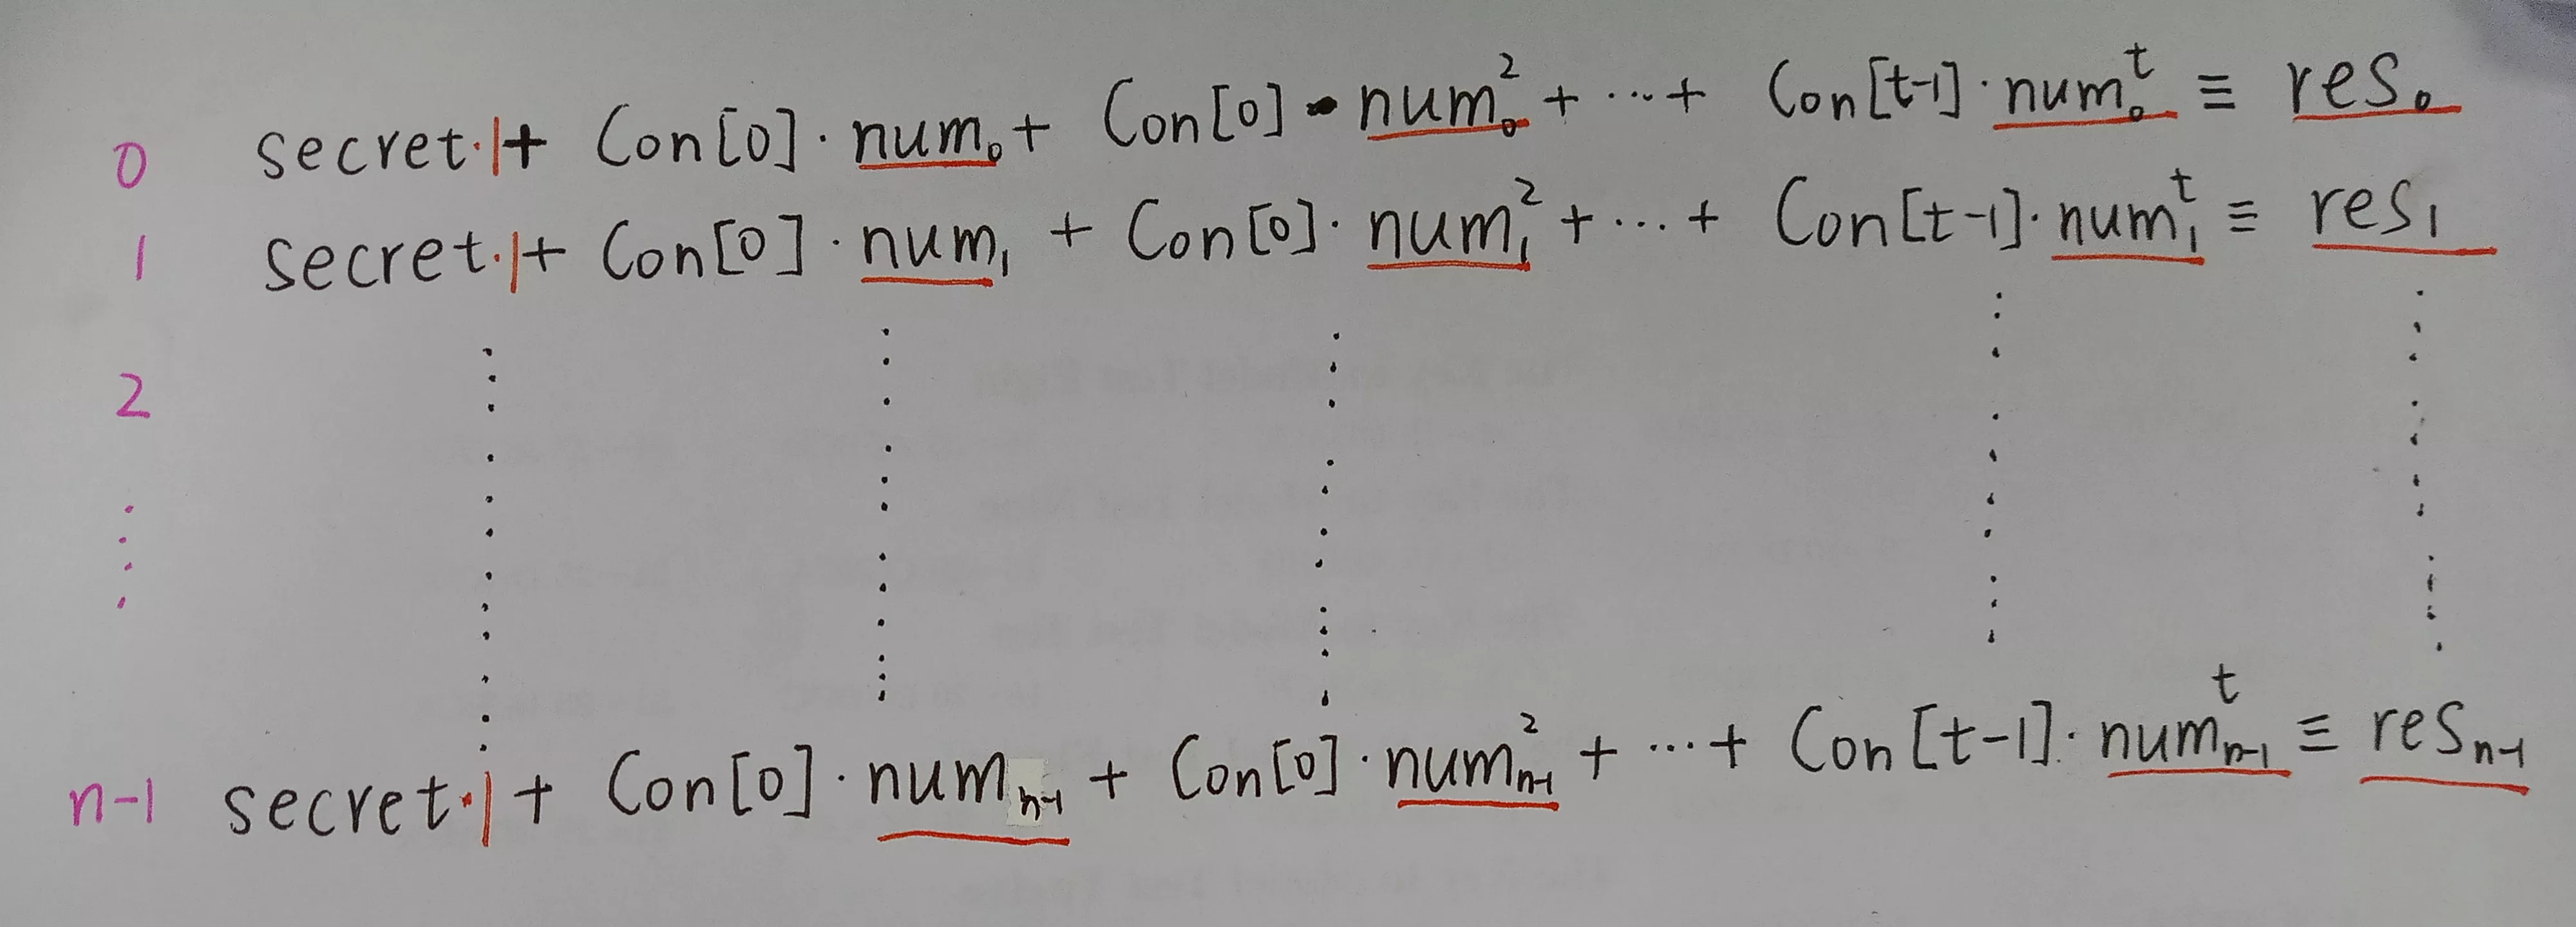 0 secret·1+ Con[0]·num₀+ Con[0]·num₀²+ ···+ Con[t-1]·num₀ᵗ ≡ res₀
1 secret·1+ Con[0]·num₁ + Con[0]·num₁²+ ··· + Con[t-1]·num₁ᵗ ≡ res₁
2
n-1 secret·1 + Con[0]·numₙ₋₁ + Con[0]·numₙ₋₁² + ···+ Con[t-1]·numₙ₋₁ᵗ ≡ resₙ₋₁